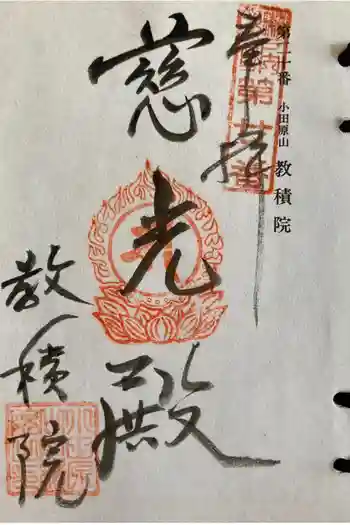 第二十番 小田原山 教積院
奉拝
慈光殿
教積院